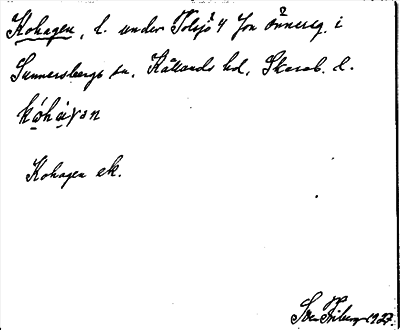 Kohagen, l. under Tolsjö 4 Jon Önnereg. i
Sunnersbergs sn, Kållands hd, Skarab. l.
kóhàγən
Kohagen ek.
Sven Friberg 1927.